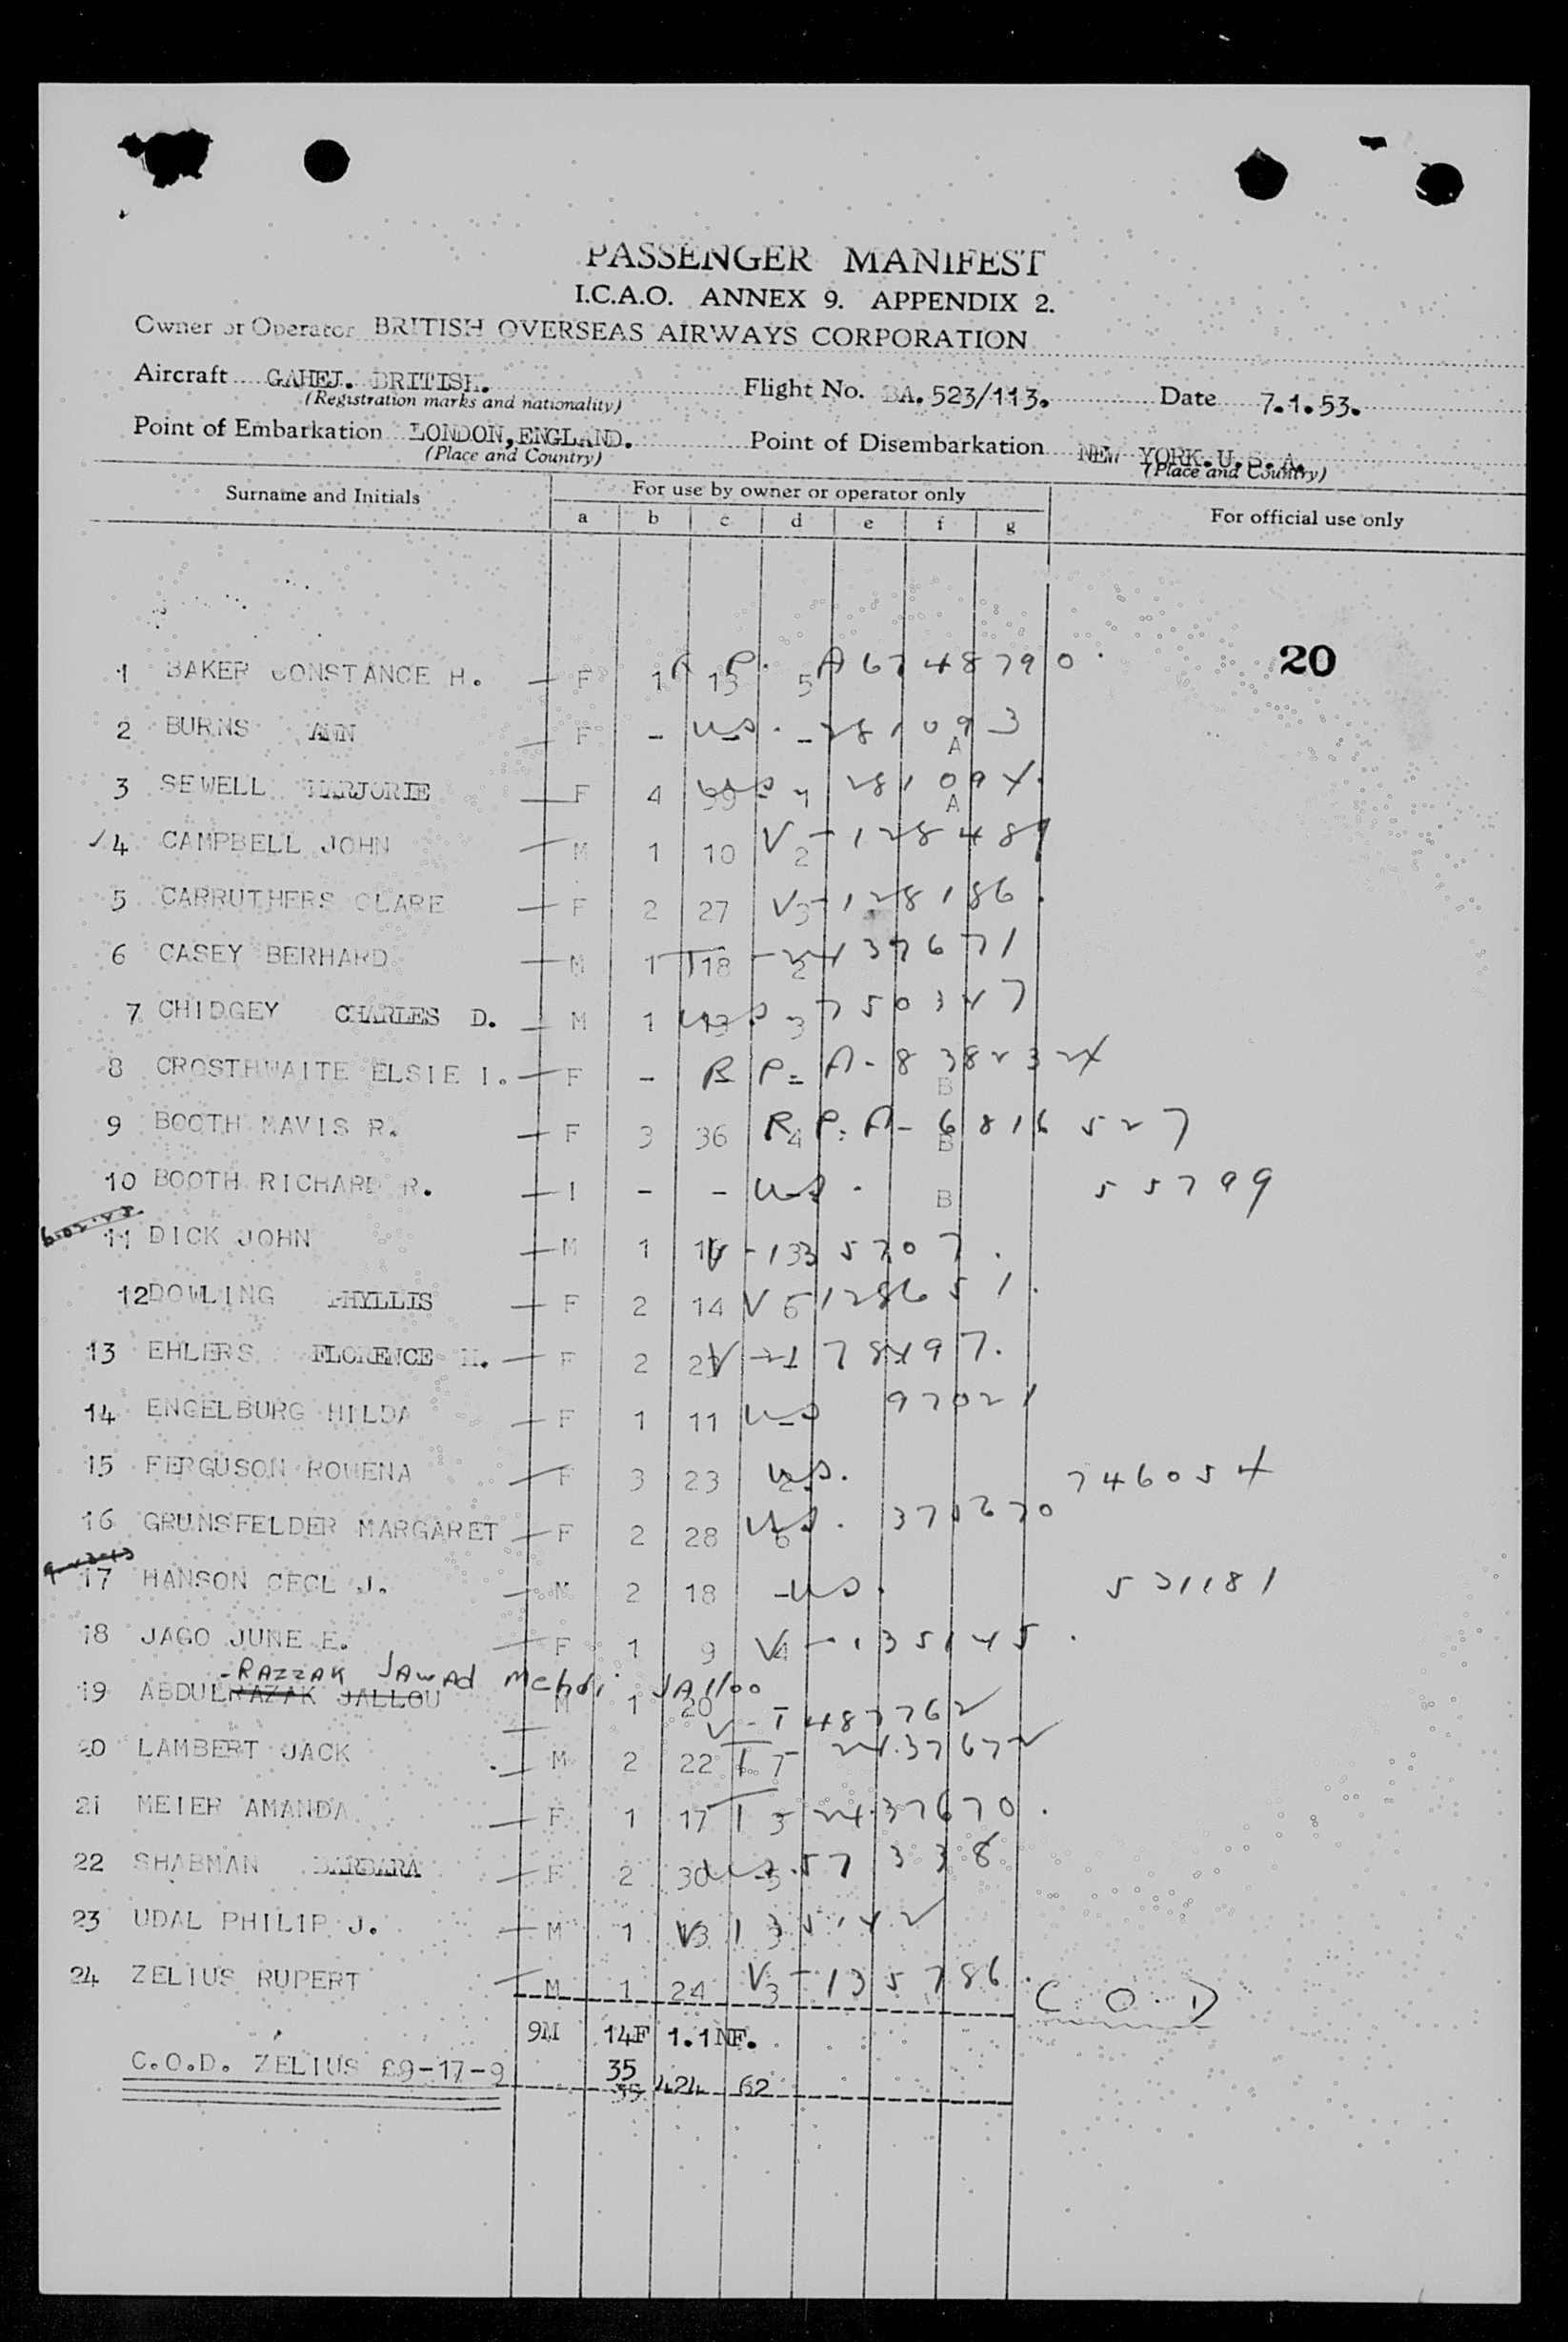 PASSENGER MANIFEST
I.C.A.O. ANNEX 9. APPENDIX 2.
Owner or Operator BRITISH OVERSEAS AIRWAYS CORPORATION
Aircraft GAHEJ. BRITISH. Flight No. BA. 523/113. Date 7.1.53.
(Registration marks and nationality)
Point of Embarkation LONDON, ENGLAND. Point of Disembarkation NEW YORK. U.S.A.
(Place and Country) (Place and Country)
Surname and Initials For use by owner or operator only For official use only
a b c d e f g
20
1 BAKER CONSTANCE H. F 1 13 5 R P. A6748790.
2 BURNS ANN F - - - US. 281093 A
3 SEWELL MARJORIE F 4 39 US 281094. A
4 CAMPBELL JOHN M 1 10 2 V-128489
5 CARRUTHERS CLARE F 2 27 3 V-128186.
6 CASEY BERHARD M 1 18 2 T-2437671
7 CHIDGEY CHARLES D. M 1 13 3 US 750347
8 CROSTHWAITE ELSIE I. F - - - R P. A-8382324 B
9 BOOTH MAVIS R. F 3 36 4 R P. A-6816527 B
10 BOOTH RICHARD R. I - - - US. B 55799
11 DICK JOHN M 1 V-1335707.
12 DOWLING PHYLLIS F 2 14 V 128651.
13 EHLERS FLORENCE F 2 V 78497.
14 ENGELBURG HILDA F 1 11 - US 97021
15 FERGUSON ROWENA F 3 23 US. 746054
16 GRUNSFELDER MARGARET F 2 28 6 US. 371270
17 HANSON CECL J. M 2 18 - US. 531181
18 JAGO JUNE E. F 1 9 4 V-135145.
-RAZZAK JAWAD Mehdi JAlloo
19 ABDULRAZAK JALLOU M 1 20 - V-T487762
20 LAMBERT JACK M 2 22 7 T 2437672
21 MEIER AMANDA F 1 17 3 T 2437670.
22 SHABMAN BARBARA F 2 30 5 US. 57338
23 UDAL PHILIP J. M 1 13 3 V 135142
24 ZELIUS RUPERT M 1 24 3 V-135786. C.O.D
9M 14F 1.1NF.
C.O.D. ZELIUS £9-17-9 35 424 62